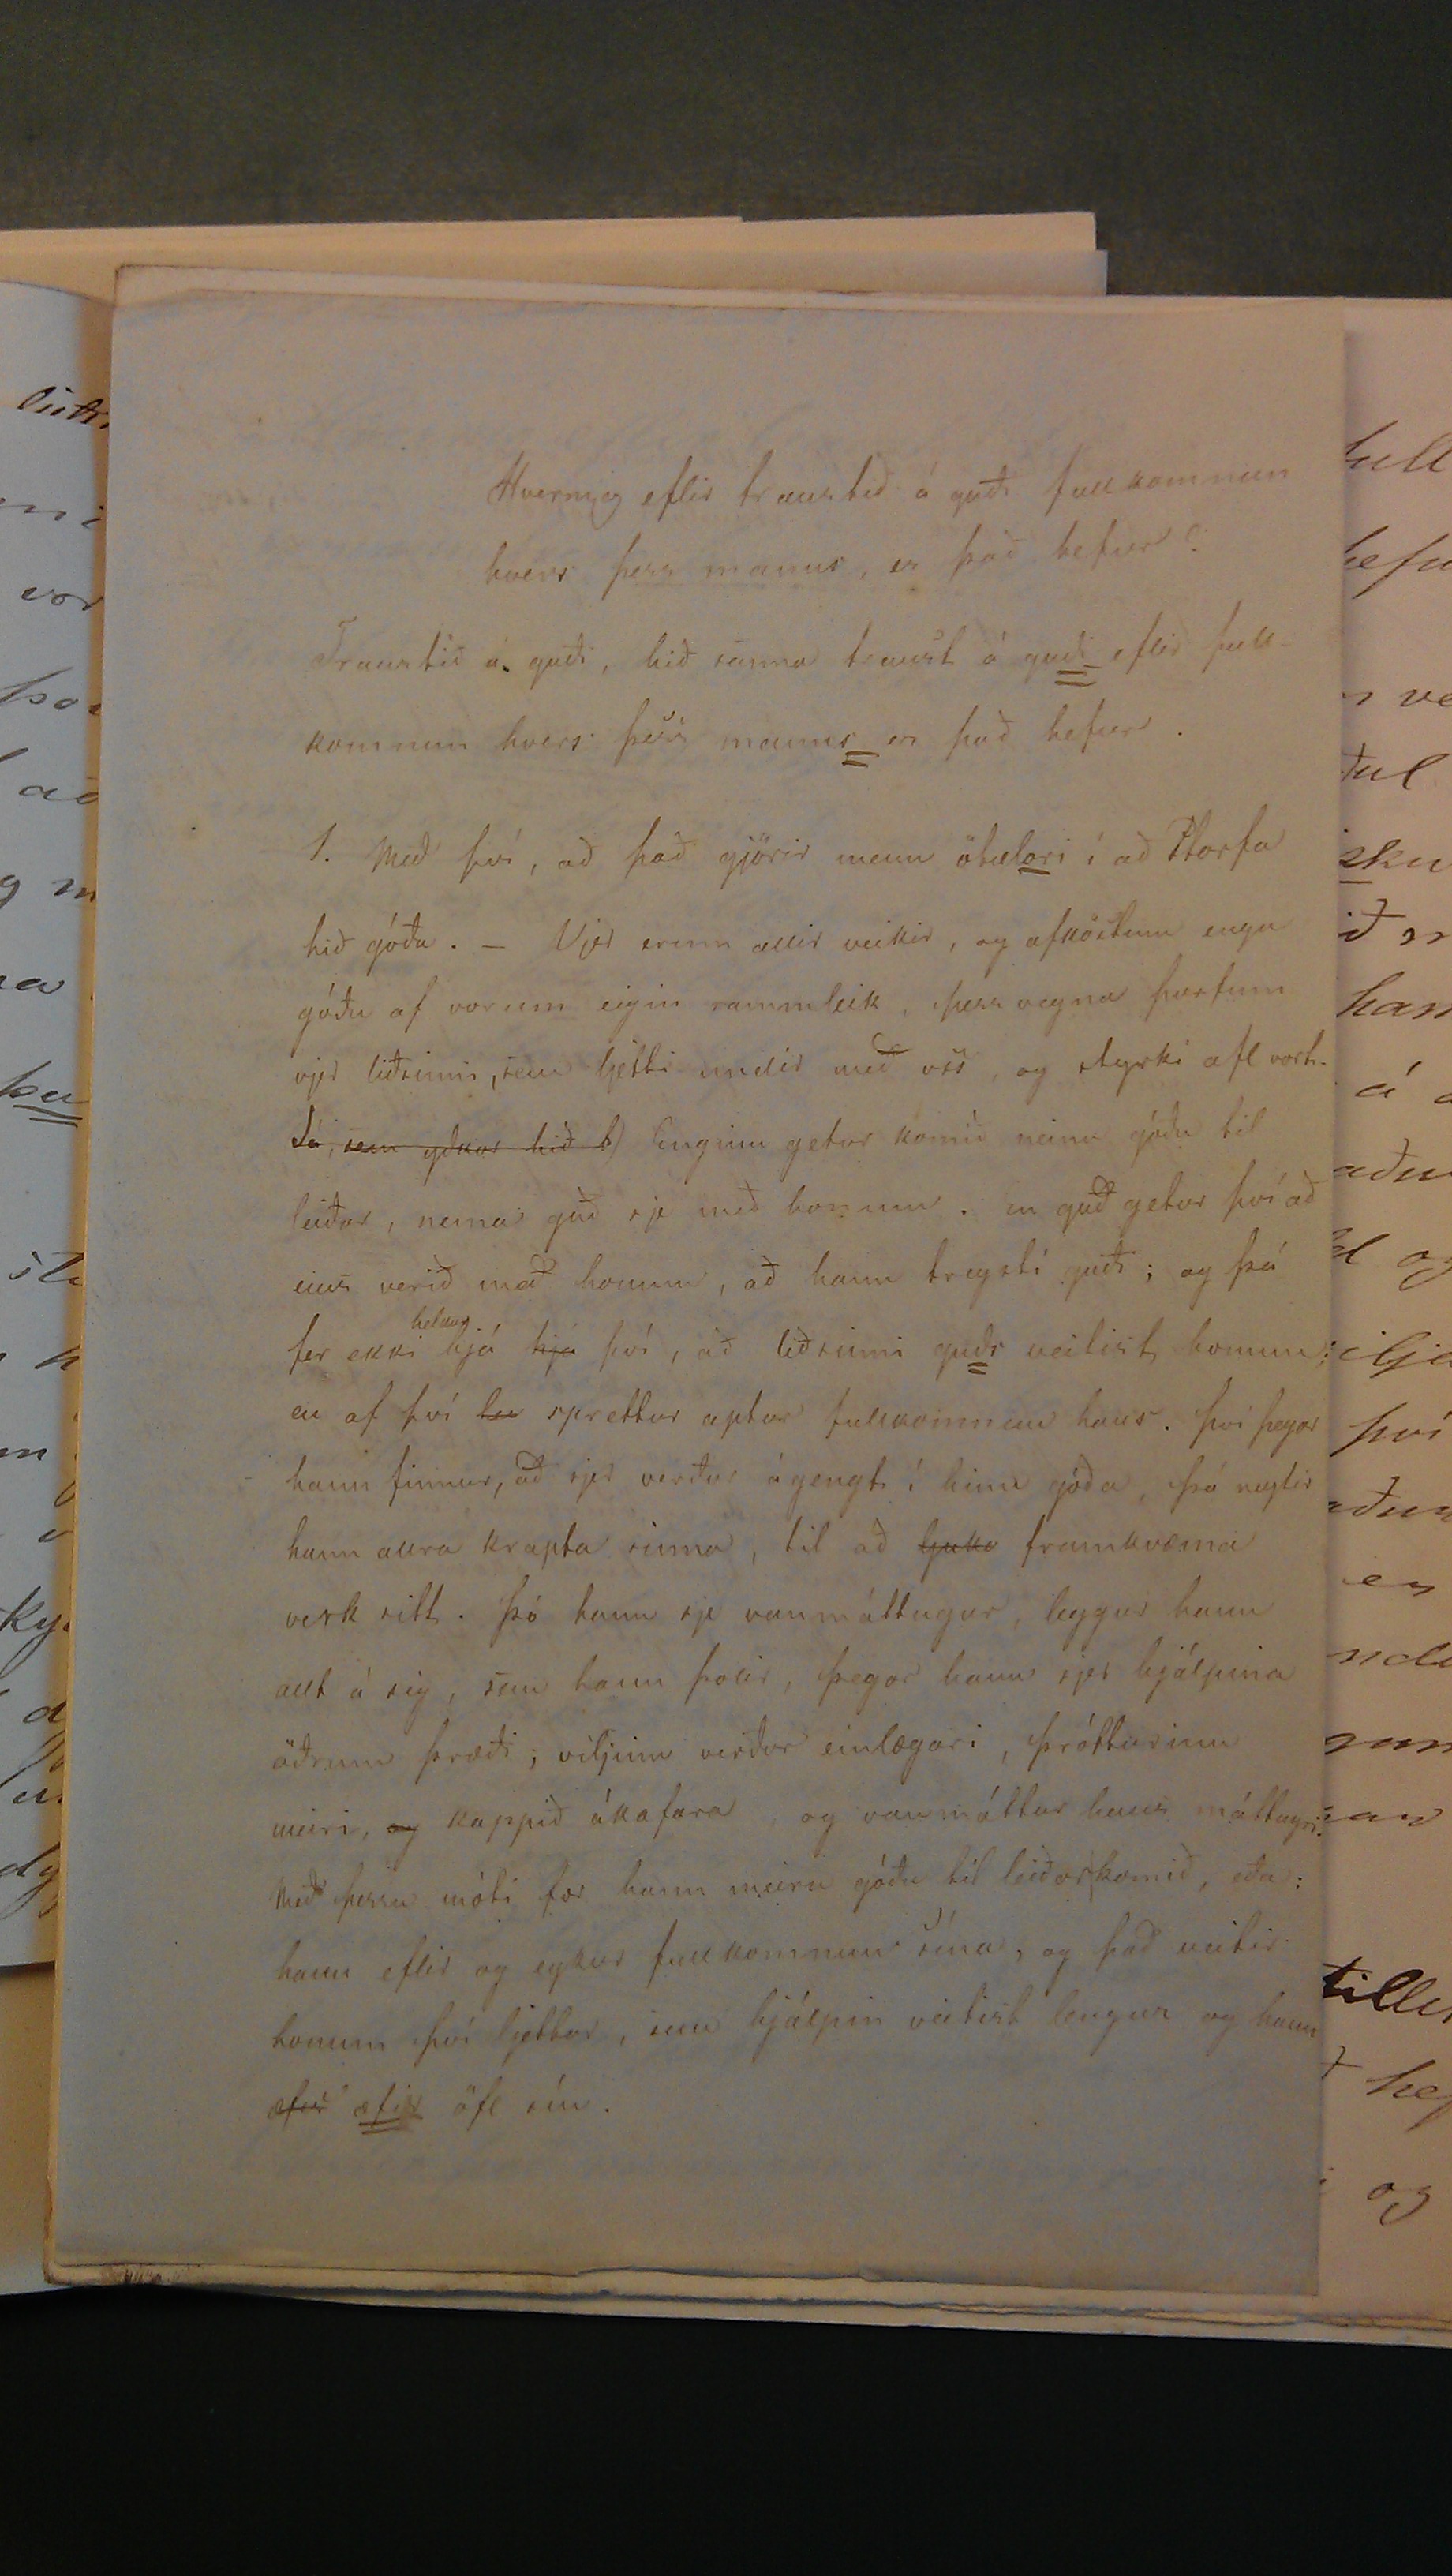 Hvernig eflir traustið á guði fullkomnun
hvers þess manns, er það hefur?
Traustið á guði, hið sanna traust á guði eflir full-
komnun hvers þess manns er það hefur.
1. Með því, að það gjörir menn ötulari í að starfa
hið góða. – Vjer erum allir veikir, og afköstum engu
góðu af vorum eigin rammleik, þess vegna þurfum
vjer liðsinni, sem ljetti undir með oss, og styrki afl vort.
Sá, sem ydkar hið b) Enginn getur komið neinu góðu til
leiðar, nema guð sje með honum. en guð getur því að
eins verið með honum, að hann treysti guði; og þá
heldur
fer ekki hjá hjá því, að liðsinni guðs veitist honum;
en af því sprettur aptur fullkomnun hans. Því þegar
hann finnur, að sjer verður ágengt í hinu góða, þá neytir
hann allra krapta sinna, til að framkvæma
verk sitt. Þó hann sje vanmáttugur, leggur hann
allt á sig, sem hann þolir, þegar hann sjer hjálpina
öðrum þræði; viljinn verður einlægari, þrótturinn
meiri, og kappið ákafara, og vanmáttur hans máttugri.
Með þessu móti fær hann meiru góðu til leiðar komið, eða:
hann eflir og eykur fullkomnun sína, og það veitir
honum því ljettar, sem hjálpin veitist lengur og hann
æfir öfl sín.